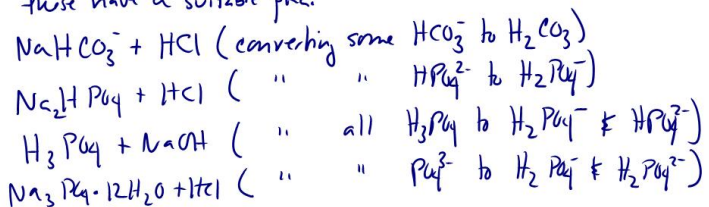 these have a suitable pKa.
NaHCO₃⁻ + HCl ( converting some HCO₃⁻ to H₂CO₃)
Na₂H PO₄ + HCl ( " " HPO₄²⁻ to H₂PO₄⁻)
H₃PO₄ + NaOH ( " all H₃PO₄ to H₂PO₄⁻ & HPO₄²⁻)
Na₃ PO₄·12H₂O + HCl ( " " PO₄³⁻ to H₂ PO₄⁻ & H₂PO₄²⁻)